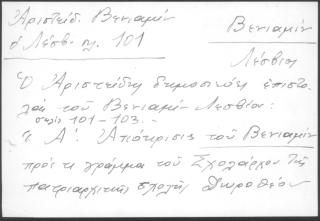 Ἀριστείδ. Βενιαμὴν
ὁ Λέσβ. 101
Βενιαμὶν
Λέσβιος
Ὁ Ἀριστείδης δημοσιεύει ἐπιστο-
λὰς τοῦ Βενιαμὶν Λεσβίου:
σελὶς 101-103.-
Α΄. Ἀπόκρισις τοῦ Βενιαμὶν
πρὸς τὸ γράμμα τοῦ Σχολάρχου τῆς
πατριαρχικῆς σχολῆς Δωροθέου